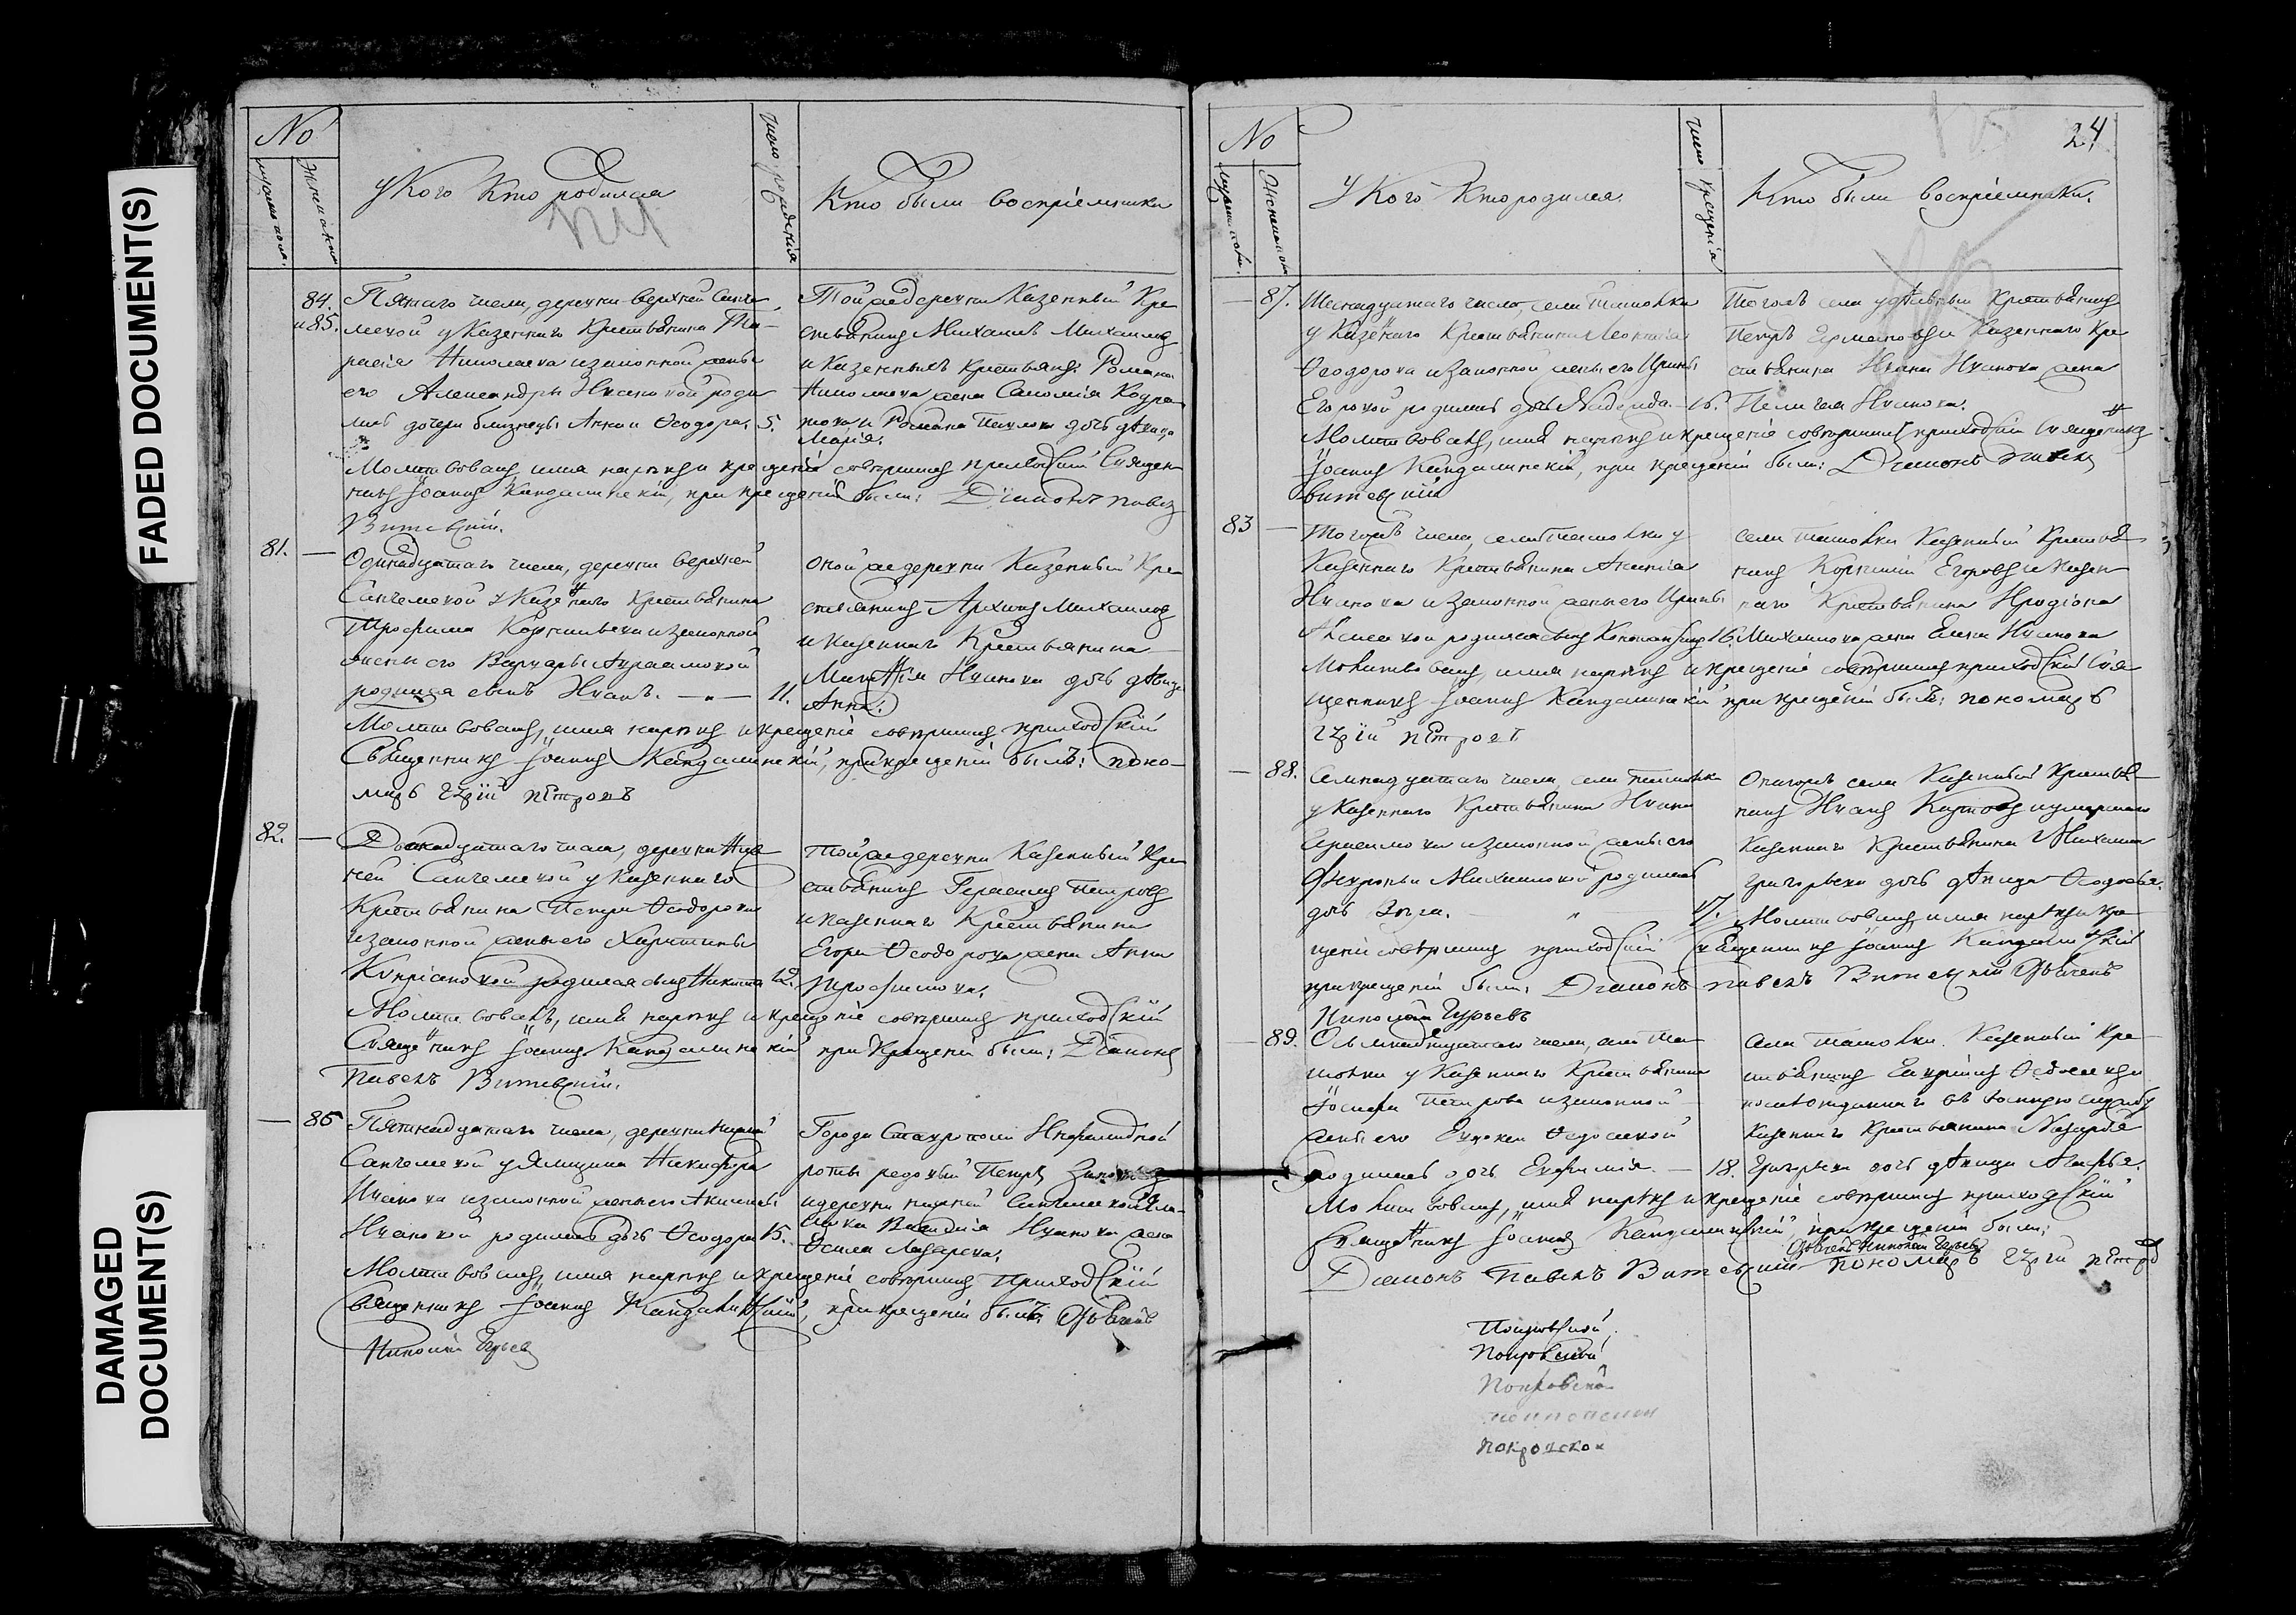 FADED DOCUMENT(S)
DAMAGED
DOCUMENT(S)
No
мужеска пола.
Женска
у Кого Кто родился
число рожденія
Кто были воспріемники
84.
и 85.
Пятаго числа, деревни Верхней Санче
леевой у Казеннаго Крестьянина Та-
расія Николаева изаконной жены
его Александры родил
ись дочери близнецы Анна и Ѳеодора. 5.
Тойже деревни Казенный Кре
стьянинъ Михаилъ Михаиловъ
и Казенныхъ Крестьянъ Романа
Николаева жена Саломія Кодра
това и Романа Павлова дочь дѣвица
Марія.
Молитвовалъ, имя нарекъ и крещеніе совершилъ приходскій Священ
никъ Іоаннъ Кандалинскій, при крещеніи были: Діаконъ Павелъ
Витевскій.
81.
Одинадцатаго числа, деревни Верхней
Санчелеевой у Казеннаго Крестьянина
Трофима Корнильева изаконной
жены его Варвары Авраамовой
родился сынъ Иванъ. — 11.
Онойже деревни Казенный Кре
стьянинъ Архипъ Михаиловъ
и Казеннаго Крестьянина
Матѳія Иванова дочь дѣвица
Анна.
Молитвовалъ, имя нарекъ и крещеніе совершилъ приходскій
Священникъ Іоаннъ Кандалинскій, при крещеніи былъ: поно-
марь Гурій Петровъ
82.
Двенадцатаго числа, деревни Ниж
ней Санчелеевой у Казеннаго
Крестьянина Петра Ѳеодорова
изаконной жены его Харитины
Кипріановой родился сынъ Никита 12.
Тойже деревни Казенный Кре
стьянинъ Герасимъ Петровъ
и Казеннаго Крестьянина
Егора Ѳеодорова жена Анна
Трофимова.
Молитвовалъ, имя нарекъ и крещеніе совершилъ приходскій
Священникъ Іоаннъ Кандалинскій при крещеніи были: Діаконъ
Павелъ Витевскій.
86
Пятнадцатаго числа, деревни Нижней
Санчелеевой у Ямщика Никифора
Иванова изаконной жены его Акилины
Ивановой родилась дочь Ѳеодора 15.
Города Ставрополя Инвалидной
роты рядовый Петръ
и деревни Нижней Санчелеевой Ям-
щика Василія Иванова жена
Ѳекла Лазарева.
Молитвовалъ, имя нарекъ и крещеніе совершилъ Приходскій
Священникъ Іоаннъ Кандалинскій, при крещеніи былъ: Дьячекъ
Николай Гурьевъ
24
No
мужеска пола.
Женска пола
У Кого Кто родился.
число крещенія
Кто были воспріемники.
87.
Шеснадцатаго числа, села Ташолки
у Казеннаго Крестьянина Леонтія
Ѳеодорова изаконной жены его Ирины
Егоровой родилась дочь Надежда. — 16.
Тогожъ села удѣльный Крестьянинъ
Петръ Ермаковъ и Казеннаго Кре
стьянина Ивана Иванова жена
Пелагея Иванова.
Молитвовалъ, имя нарекъ и крещеніе совершилъ приходскій Священникъ
Іоаннъ Кандалинскій, при крещеніи были: Діаконъ Павелъ
Витевскій
83
Тогожъ числа, села Ташолки у
Казеннаго Крестьянина Ананія
Иванова изаконной жены его Ирины
Алексеевой родился сынъ Константинъ 16.
Села Ташолки Казенный Крестья
нинъ Корнилій Егоровъ и Казен
наго Крестьянина Иродіона
Михаилова жена Елена Иванова
Молитвовалъ, имя нарекъ и крещеніе совершилъ приходскій Свя
щенникъ Іоаннъ Кандалинскій при крещеніи былъ: пономарь
Гурій Петровъ
88.
Семнадцатаго числа, села Ташолки
у Казеннаго Крестьянина Ивана
Герасимова изаконной жены его
Февроньи Михаиловой родилась
дочь Вѣра. 17.
Онагожъ села Казенный Крестья
нинъ Иванъ Карповъ и умершаго
Казеннаго Крестьянина Михаила
Григорьева дочь дѣвица Ѳеодосья.
Молитвовалъ, имя нарекъ и кре
щеніе совершилъ приходскій Священникъ Іоаннъ Кандалинскій
при крещеніи были: Діаконъ Павелъ Витевскій Дьячекъ
Николай Гурьевъ
89.
Осьмнадцатаго числа, села Та
шолки у Казеннаго Крестьянина
Іосифа Петрова изаконной
жены его Евдокеи Ѳедосеевой
родилась дочь Евфимія. — 18.
Села Ташолки Казенный Кре
стьянинъ
въ воинскую службу
Казеннаго Крестьянина Назарья
Григорьева дочь дѣвица Агафья.
Молитвовалъ, имя нарекъ и крещеніе совершилъ приходскій
Священникъ Іоаннъ Кандалинскій, при крещеніи были:
Дьячекъ Николай Гурьевъ
Діаконъ Павелъ Витевскій пономарь Гурій Петровъ
Покровской
Покровской
Покровской
покровской